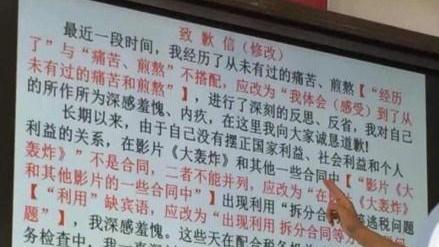 致歉信（修改）
最近一段时间，我经历了从未有过的痛苦、煎熬【“经历
了”与“痛苦、煎熬”不搭配，应改为“我体会（感受）到了从
未有过的痛苦和煎熬”】，进行了深刻的反思、反省，我对自己
的所作所为深感羞愧、内疚，在这里我向大家诚恳道歉!
长期以来，由于自己没有摆正国家利益、社会利益和个人
利益的关系，在影片《大轰炸》和其他一些合同中【“影片《大
轰炸》”不是合同，二者不能并列，应改为“在影片《大
和其他影片的一些合同中”】出现利用“拆分合同
【“利用”缺宾语，应改为“出现利用‘拆分合同等 逃税问
题”】，我深感羞愧。这些天在配合税务
务检查中，我一直深